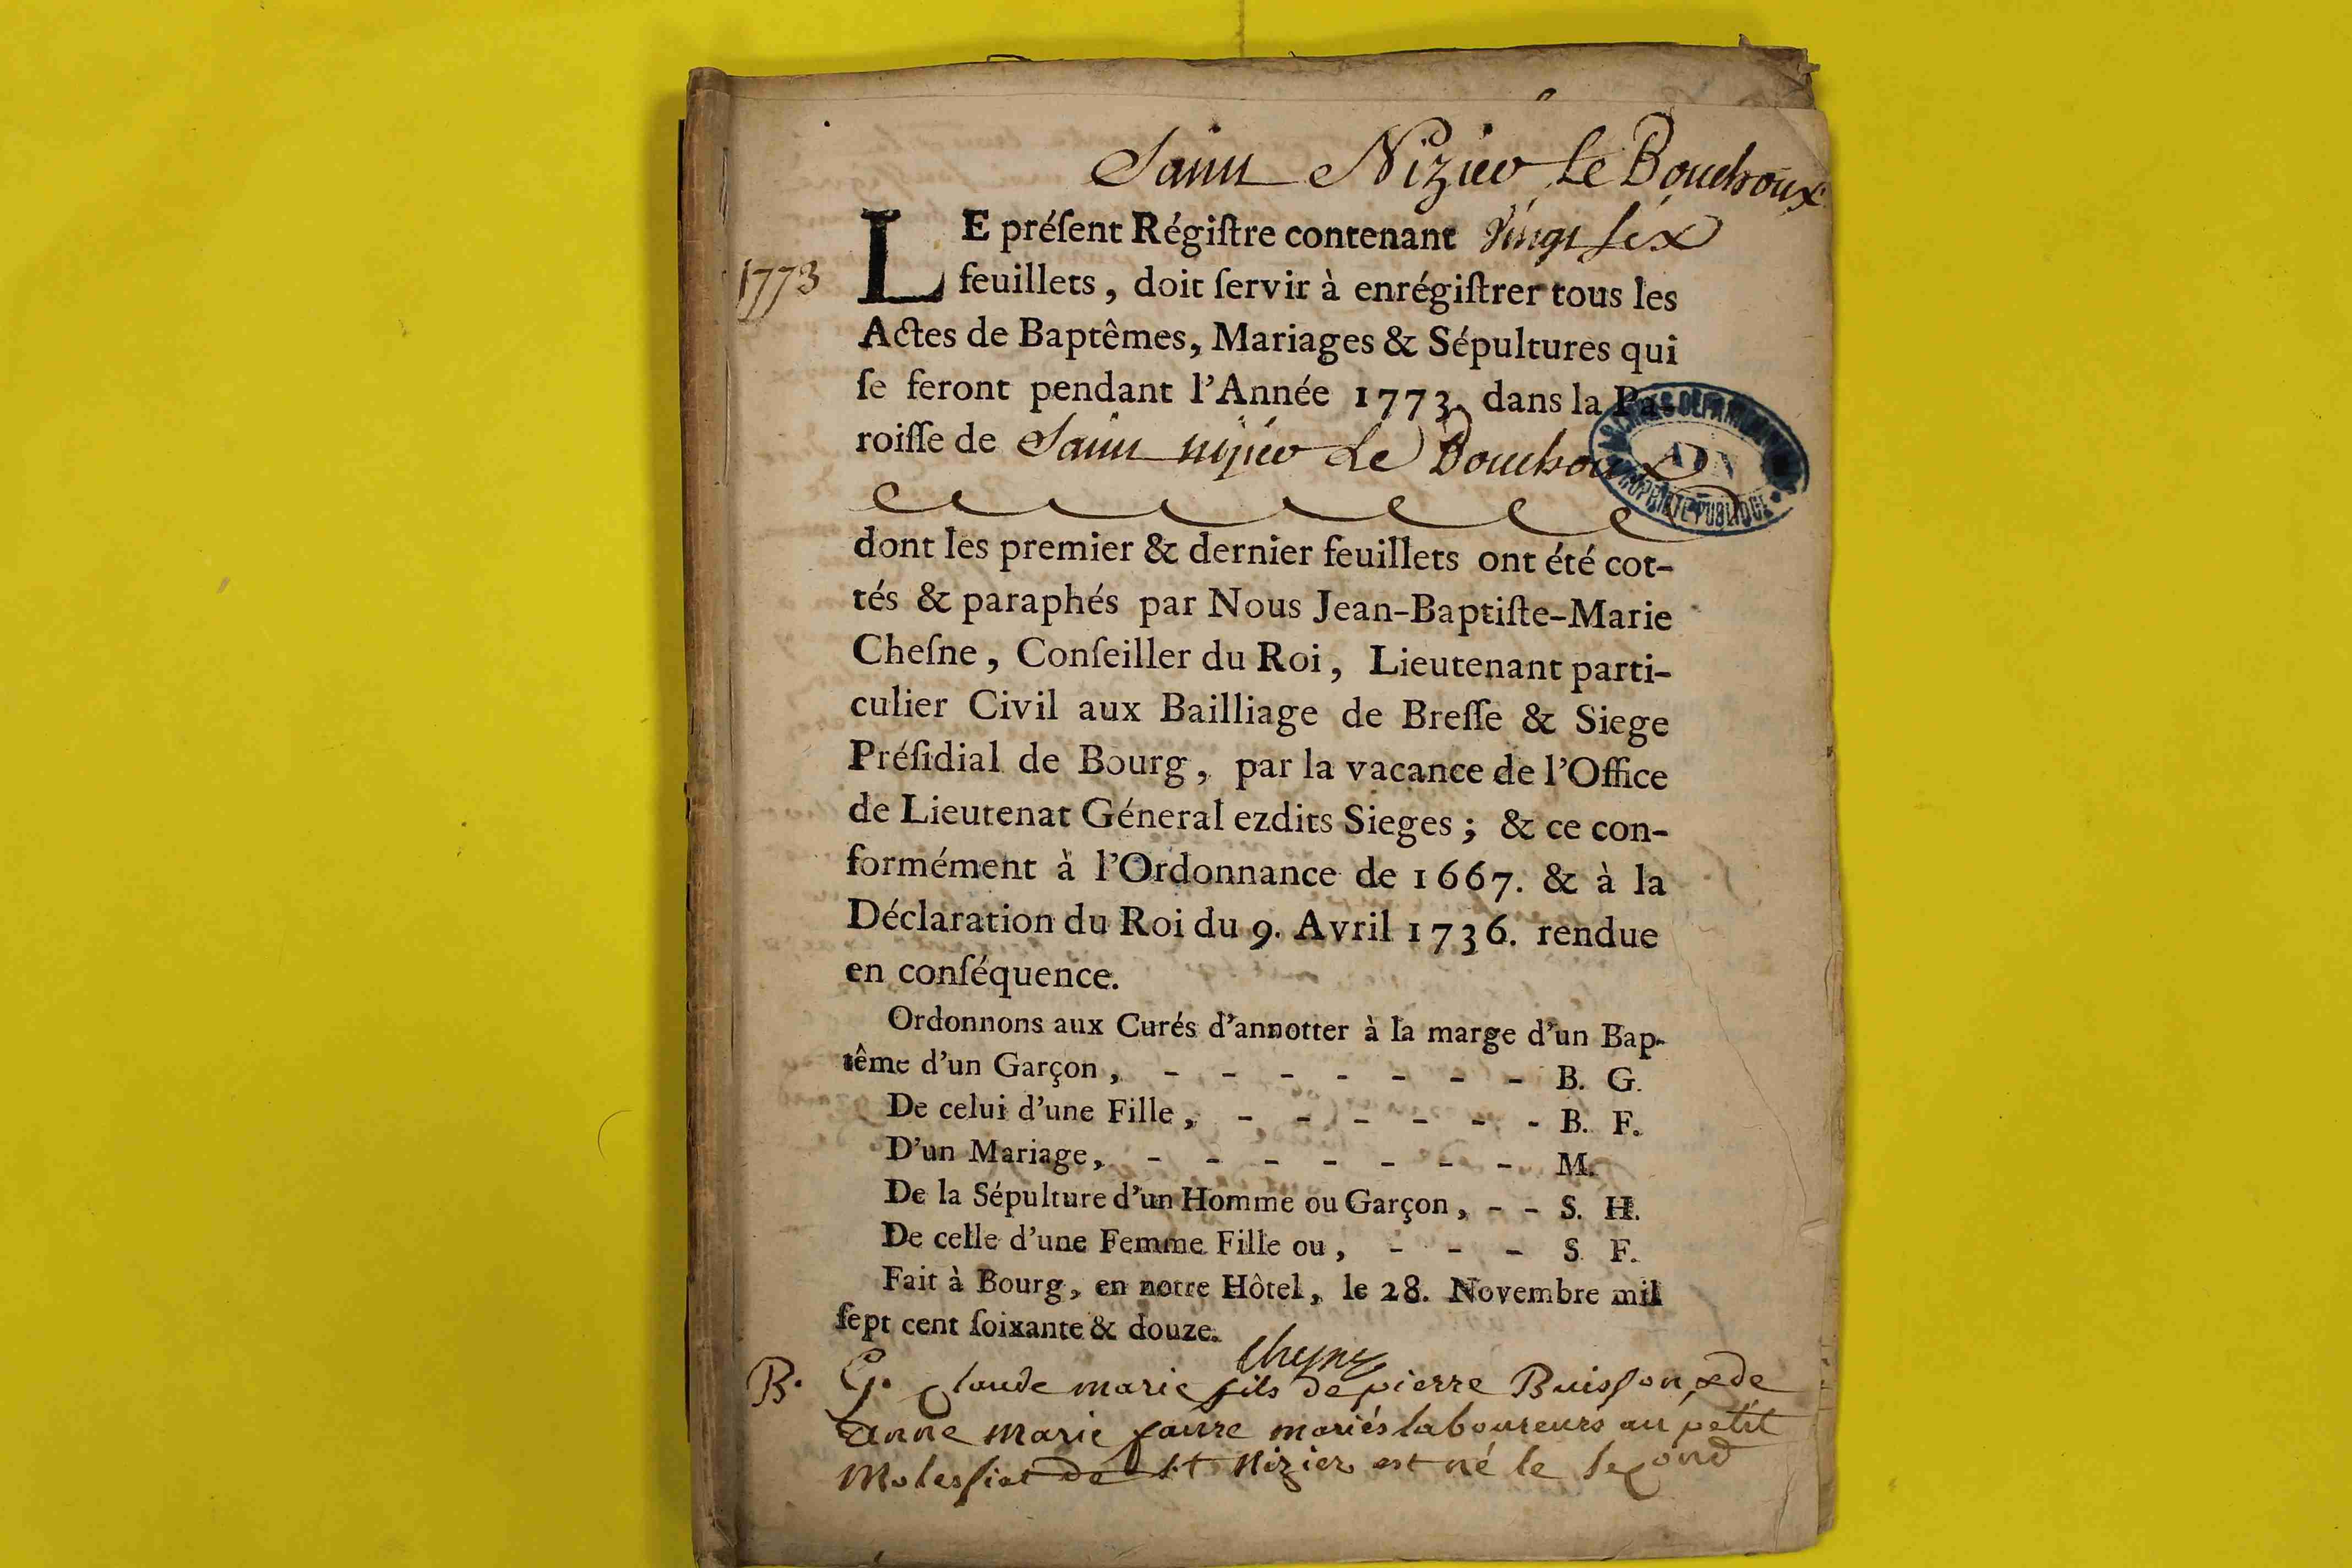 Saint Nizier Le Bouchoux
1773
LE préſent Régiſtre contenant vingt ſix
feuillets, doit ſervir à enrégiſtrer tous les
Actes de Baptêmes, Mariages & Sépultures qui
ſe feront pendant l'Année 1773. dans la Pa-
roiſſe de Saint nizier Le Bouchoux
dont les premier & dernier feuillets ont été cot-
tés & paraphés par Nous Jean-Baptiſte-Marie
Cheſne, Conſeiller du Roi, Lieutenant parti-
culier Civil aux Bailliage de Breſſe & Siege
Préſidial de Bourg, par la vacance de l'Office
de Lieutenat Géneral ezdits Sieges; & ce con-
formément à l'Ordonnance de 1667. & à la
Déclaration du Roi du 9. Avril 1736. rendue
en conſéquence.
Ordonnons aux Curés d'annotter à la marge d'un Bap-
tême d'un Garçon, - - - - - - - B. G.
De celui d'une Fille, - - - - - - B. F.
D'un Mariage, - - - - - - - M.
De la Sépulture d'un Homme ou Garçon, - - S. H.
De celle d'une Femme Fille ou, - - - S F.
Fait à Bourg, en notre Hôtel, le 28. Novembre mil
ſept cent ſoixante & douze.
Chesne
B. G. Claude marie fils de pierre Buisson & de
anne marie faure mariés laboureurs au petit
Molessiat de St Nizier est né le second
ARCHIVES DEPARTEMENTALES
ADA
PROPRIETE PUBLIQUE